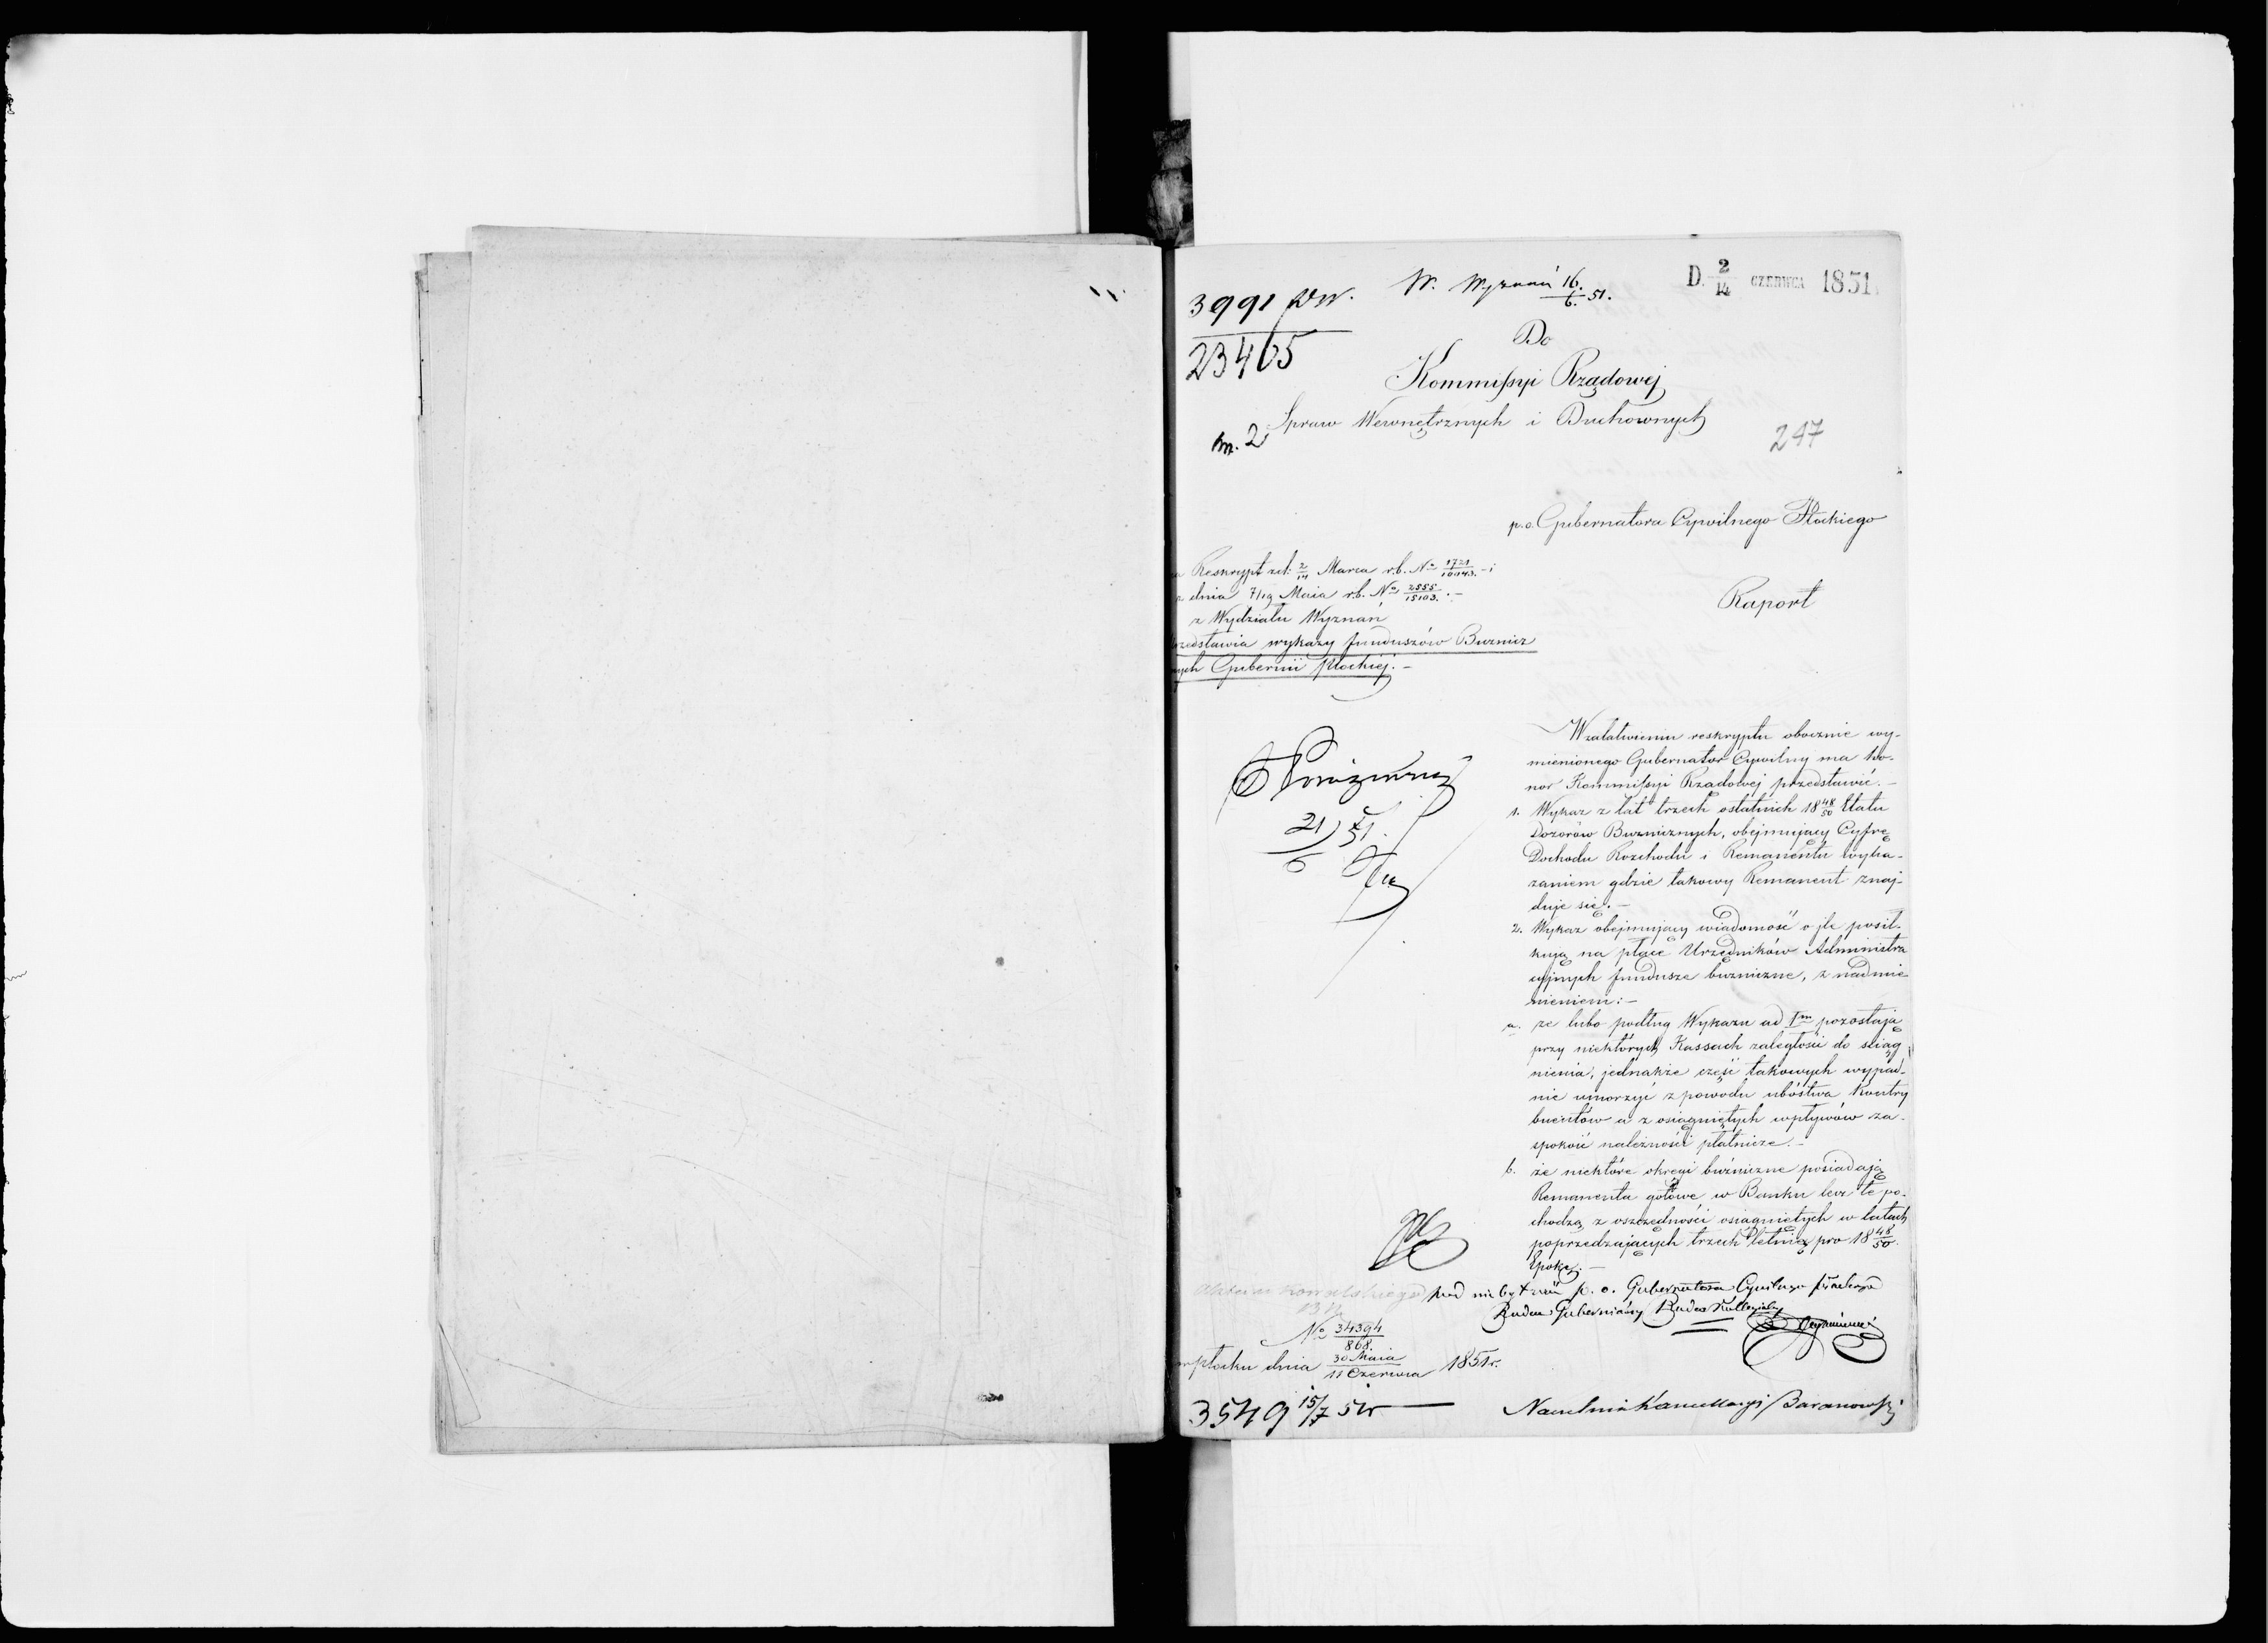 W. Wyznań 16/6. 51.
D. 2/14 CZERWCA 1851.
3991
23465
Do
Kommissyi Rządowej
Spraw Wewnętrznych i Duchownych
247
p.o. Gubernatora Cywilnego Płockiego
Reskrypt 2/14 Marca r.b. No 1721/10043. - i
dnia 7/19 Maia r.b. No 2555/15103. -
z Wydziału Wyznań
rzedstawia wykazy funduszów Buznicz
nych Gubernii Płockiej. -
Raport
W załatwieniu reskryptu obocznie wy-
mienionego Gubernator Cywilny ma ho-
nor Kommissyi Rządowej przedstawić. -
1. Wykaz z lat trzech ostatnich 18 48/50 Etatu
Dozorów Buzniczych, obejmujący Cyfrę
Dochodu Rozchodu i Remanentu wyka-
zaniem gdzie takowy Remanent znaj-
duje się. -
2. Wykaz obejmujący wiadomość o jle posił-
kują na płace Urzędników Administra
cyjnych fundusze buznicze, z nadmie
nieniem: -
a. że lubo podług Wykazu ad 1m pozostają
przy niektórych Kassach zaległości do sciąg
nienia, jednakże część takowych wypad-
nie umorzyć z powodu ubóstwa Kontry
buentów a z osiągniętych wpływów za-
spokoić należności płatnicze. -
b. że niektóre okręgi buźnicze posiadają
Remanenta gotowe w Banku lecz te po-
chodzą z oszczędności osiągniętych w latach
poprzedzających trzech letnią pro 18 48/50.
Epokę. -
21/6 51.
pod niebytność p. o. Gubernatora Cywilnego Płockiego
Radca Gubernialny Radca Kollegialny
No 34394/868.
w Płocku dnia 30 Maia/11 Czerwca 1851 r.
3549 15/7 51r
Naczelnik Kancellaryi Baranowski